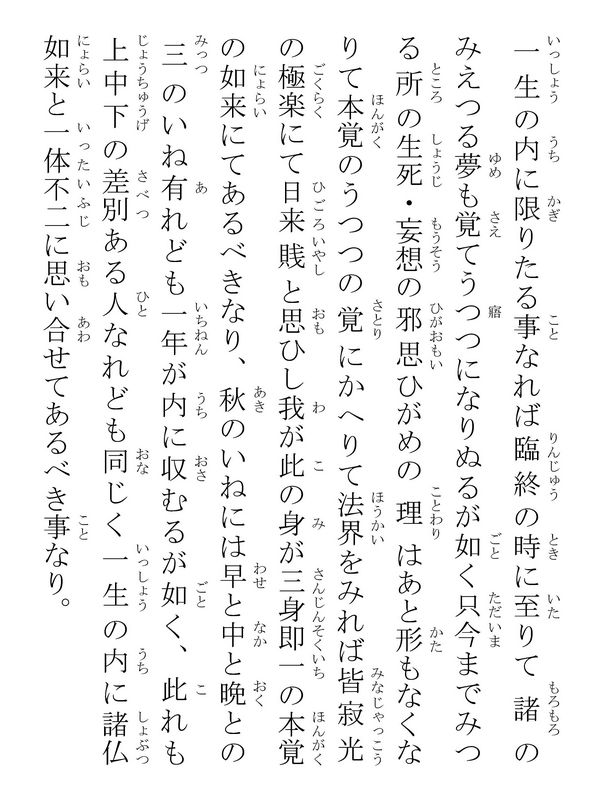 一生の内に限りたる事なれば臨終の時に至りて諸の
みえつる夢も覚てうつつになりぬるが如く只今までみつ
る所の生死・妄想の邪思ひがめの理はあと形もなくな
りて本覚のうつつの覚にかへりて法界をみれば皆寂光
の極楽にて日来賎と思ひし我が此の身が三身即一の本覚
の如来にてあるべきなり、秋のいねには早と中と晩との
三のいね有れども一年が内に収むるが如く、此れも
上中下の差別ある人なれども同じく一生の内に諸仏
如来と一体不二に思い合せてあるべき事なり。